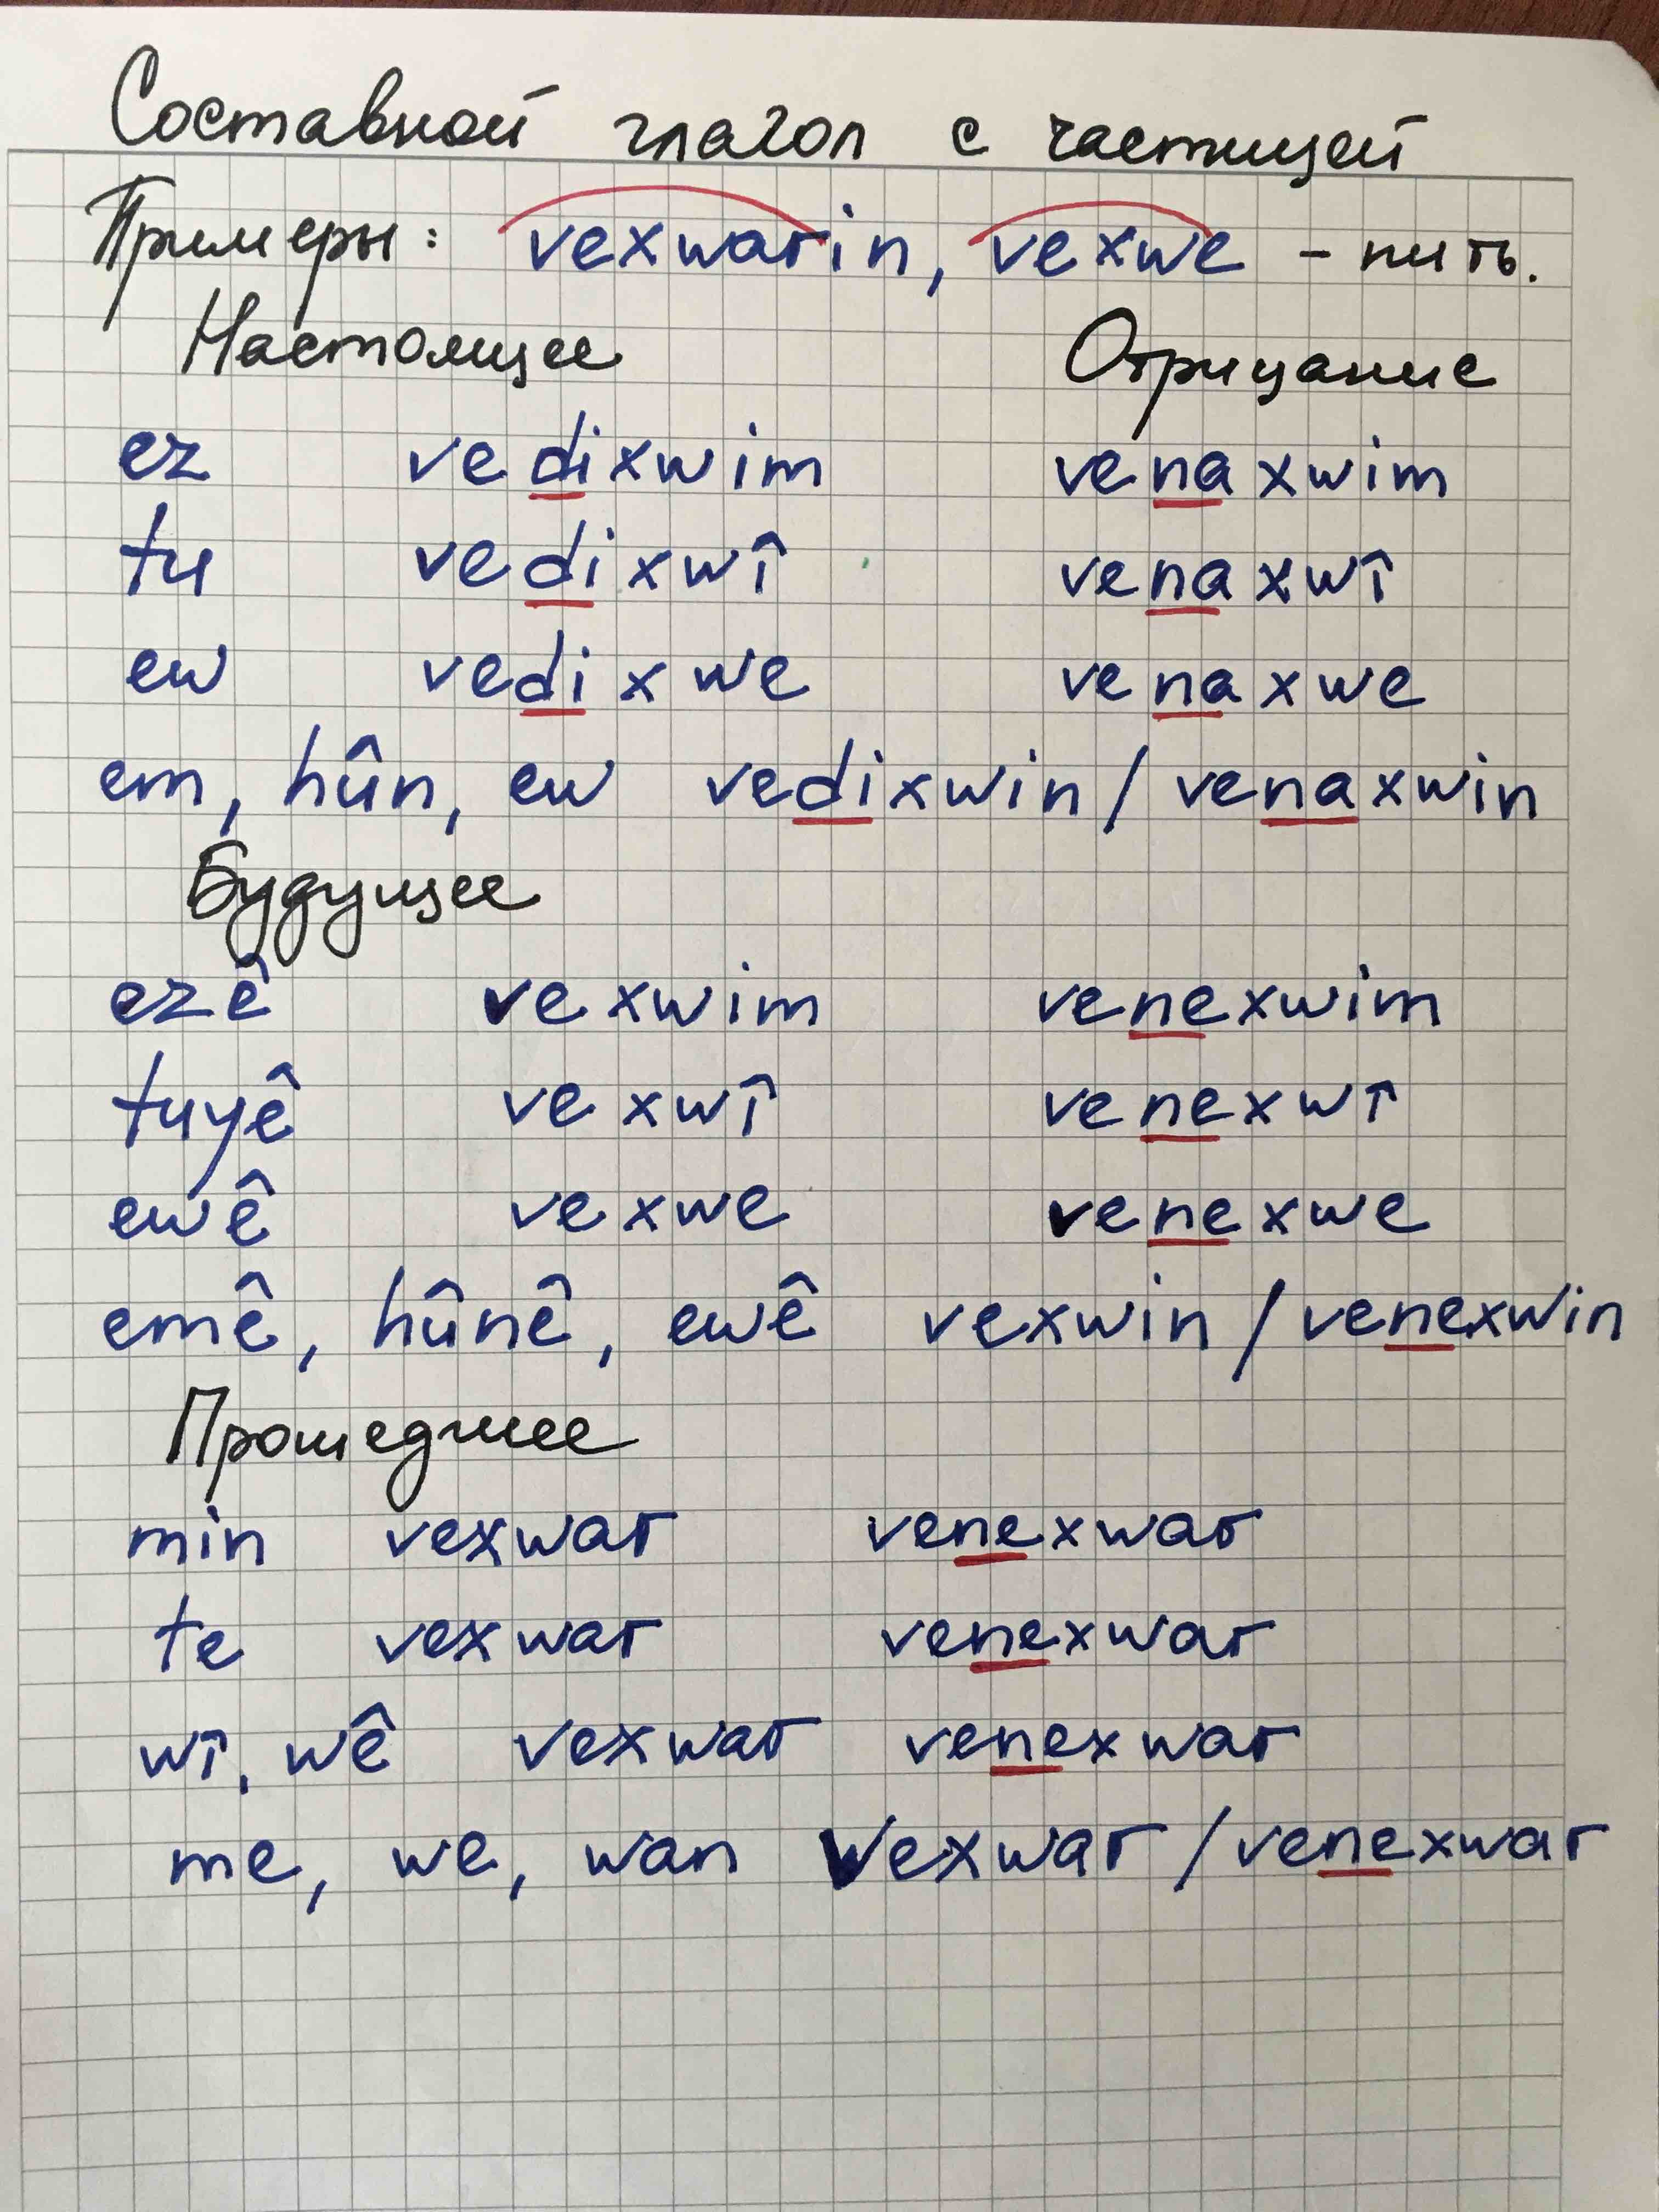 Составной глагол с частицей
Примеры: vexwarin, vexwe - пить.
Настоящее Отрицание
ez vedixwim venaxwim
tu vedixwî venaxwî
ew vedixwe venaxwe
em, hûn, ew vedixwin / venaxwin
Будущее
ezê vexwim venexwim
tuyê vexwî venexwî
ewê vexwe venexwe
emê, hûnê, ewê vexwin / venexwin
Прошедшее
min vexwar venexwar
te vexwar venexwar
wî, wê vexwar venexwar
me, we, wan vexwar / venexwar